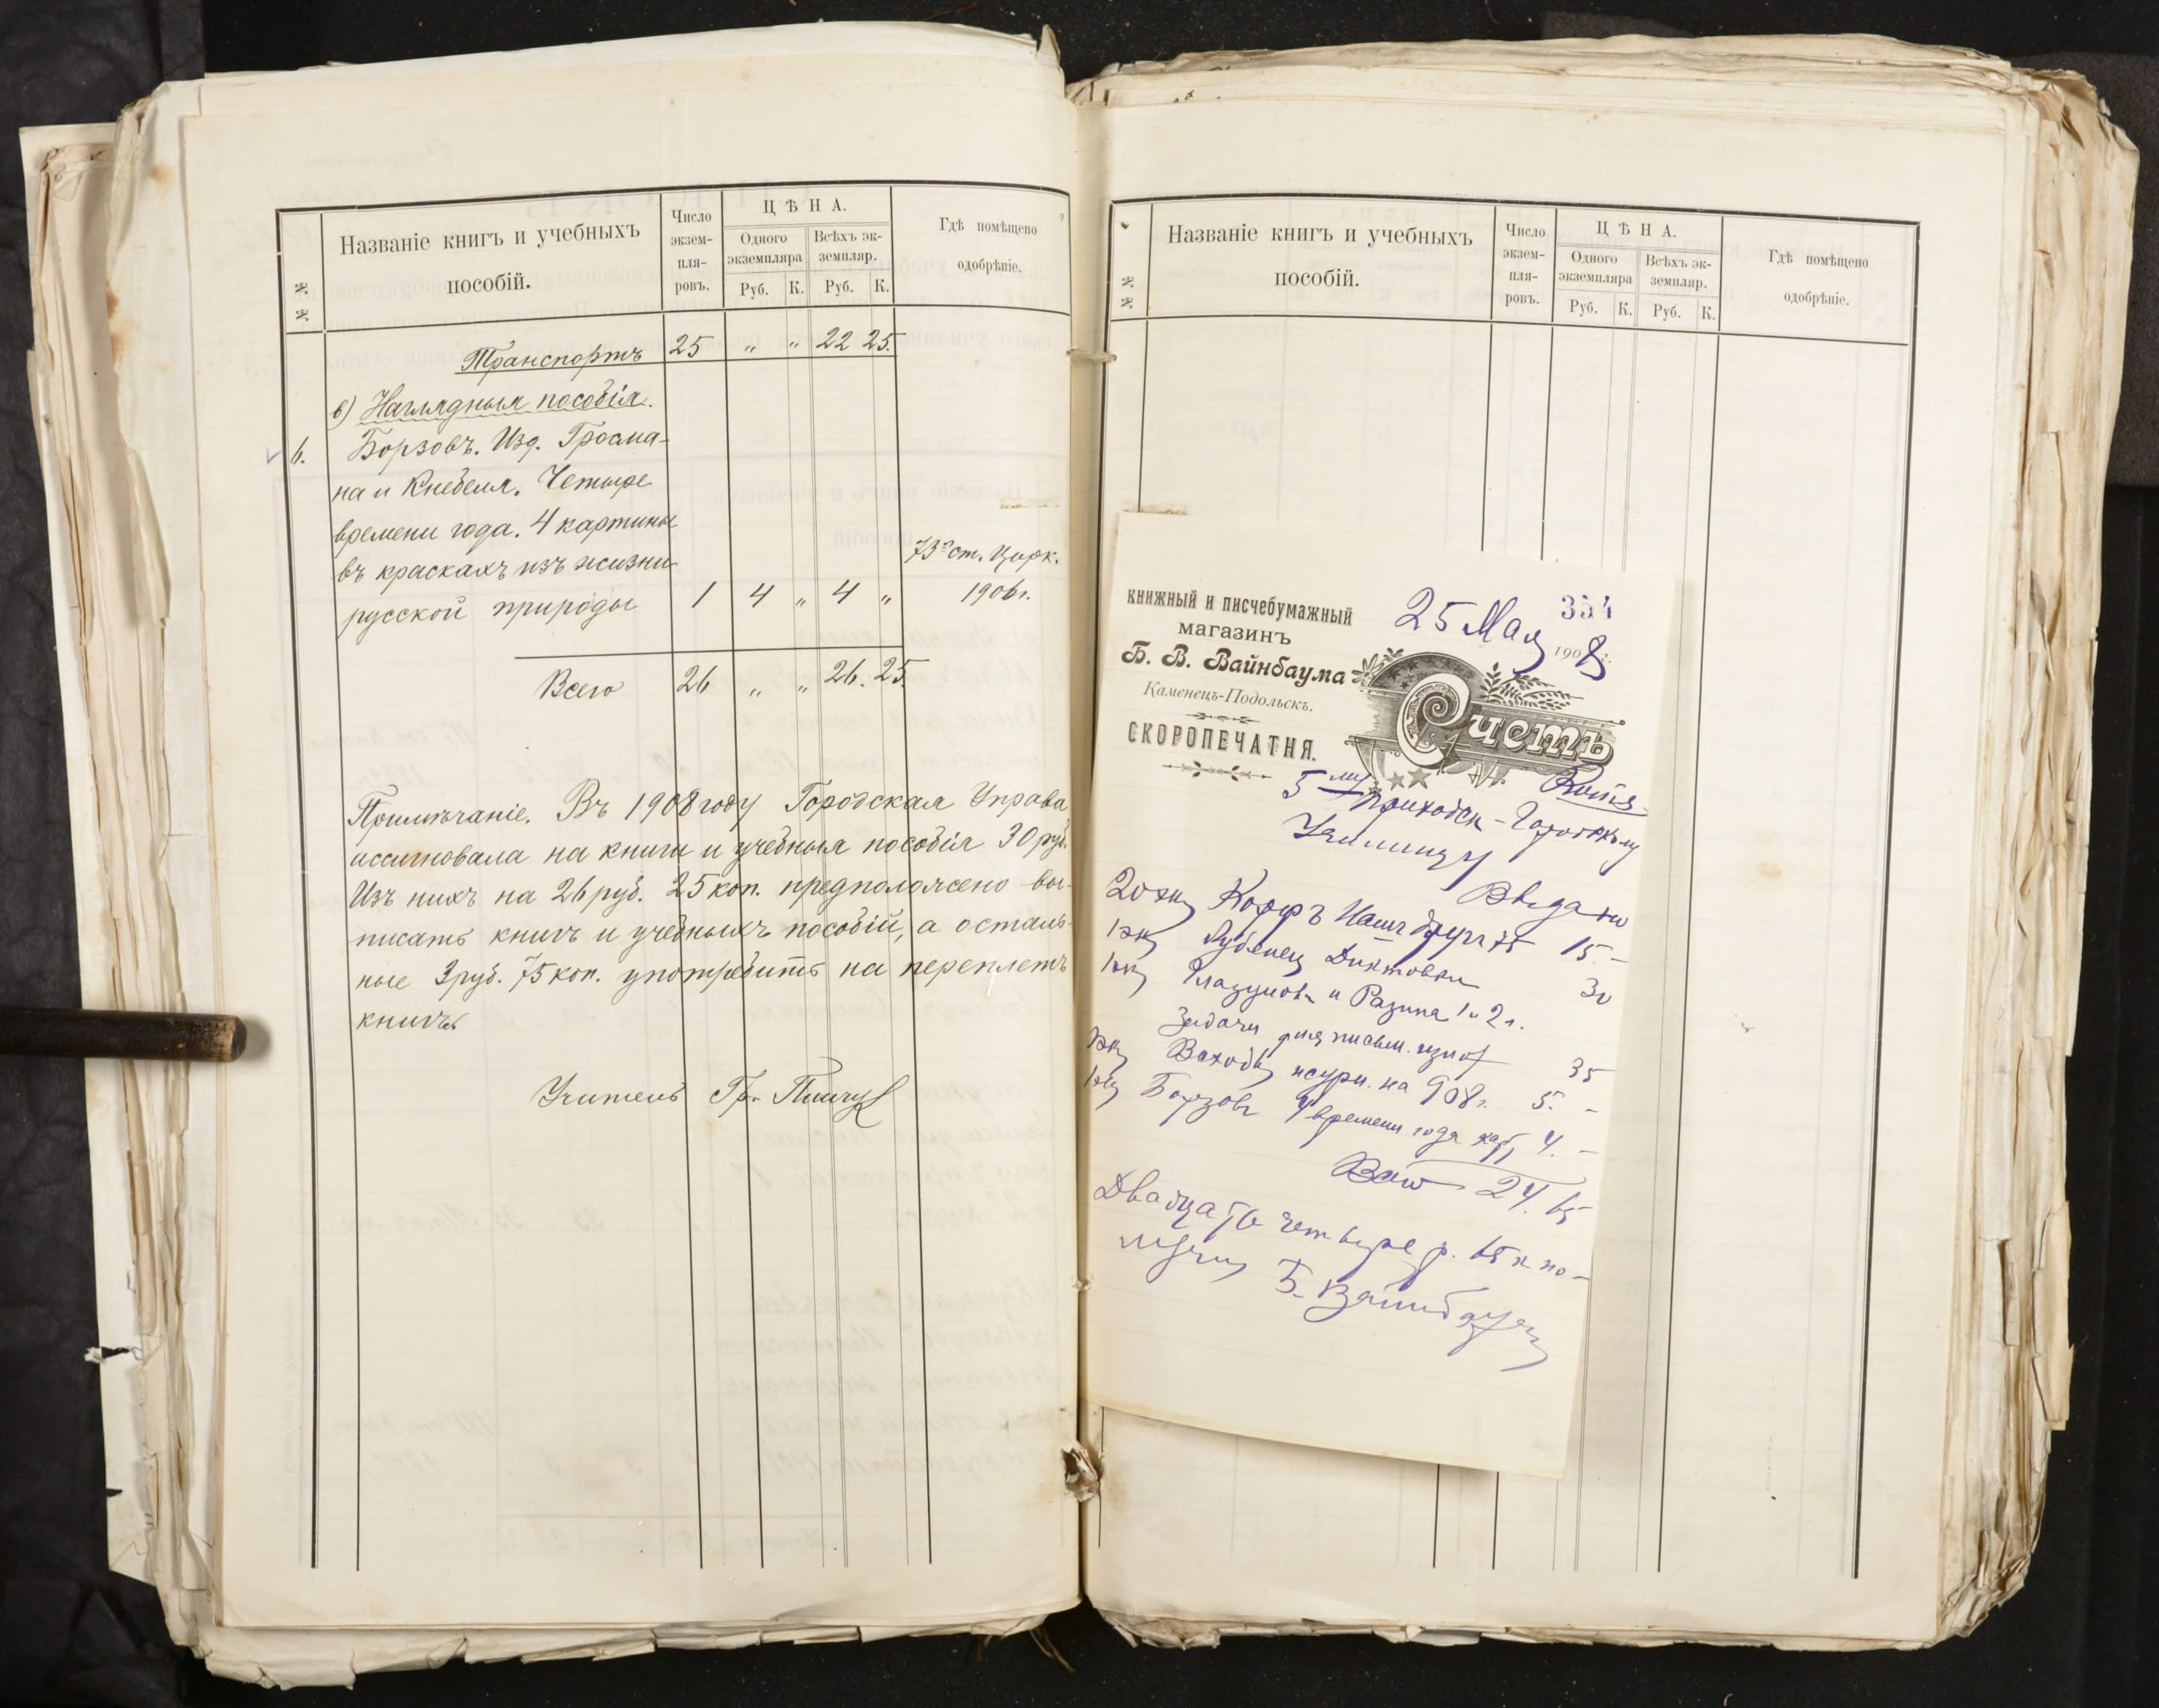 № №
Названіе книгъ и учебныхъ
пособій.
Число
экзем-
пля-
ровъ.
ЦѢНА.
Одного
экземпляра
Всѣхъ эк-
земпляр.
Руб. К. Руб. К.
Гдѣ помѣщено
одобрѣніе.
Транспортъ 25 " " 22 25.
в) Наглядныя пособія.
6. Борзовъ. Изд. Гросма-
на и Кнебеля. Четыре
времени года. 4 картины
въ краскахъ изъ жизни 73 ст. Цирк.
русской природы 1 4 " 4 " 1906 г.
Всего 26 " " 26. 25.
Примѣчаніе. Въ 1908 году Городская Управа
ассигновала на книги и учебныя пособія 30 руб.
Изъ нихъ на 26 руб. 25 коп. предположено вы-
писать книгъ и учебныхъ пособій, а осталь-
ные 3 руб. 75 коп. употребить на переплетъ
книгъ.
Учитель Гр. Пищук
№ №
Названіе книгъ и учебныхъ
пособій.
Число
экзем-
пля-
ровъ.
ЦѢНА.
Одного
экземпляра
Всѣхъ эк-
земпляр.
Руб. К. Руб. К.
Гдѣ помѣщено
одобрѣніе.
354
25 Мая 1908 г.
книжный и писчебумажный
магазинъ
Б. В. Вайнбаума
Каменецъ-Подольскъ.
СКОРОПЕЧАТНЯ.
Счетъ
5 му Приходск - Городскому
Училищу
20 экз Корфъ Нашъ другъ 75 15.-
1 экз Диктовки 30
1 экз и Разина 1 и 2 г.
Задачи для письм. 35
1 экз журн. на 908 г. 5. -
1 экз Борзовъ 4 времени года карт 4. -
Всего 24. 65
Двадцать четыре р. 65 к по-
лучил Б. Вайнбаум